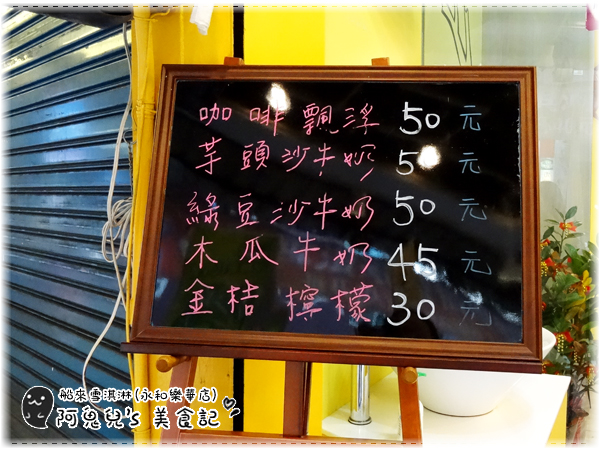 咖啡飄浮 50 元
芋頭沙牛奶 5 元
綠豆沙牛奶 50 元
木瓜牛奶 45 元
金桔檸檬 30 元
船來雪淇淋(永和樂華店)
阿兒's 美食記